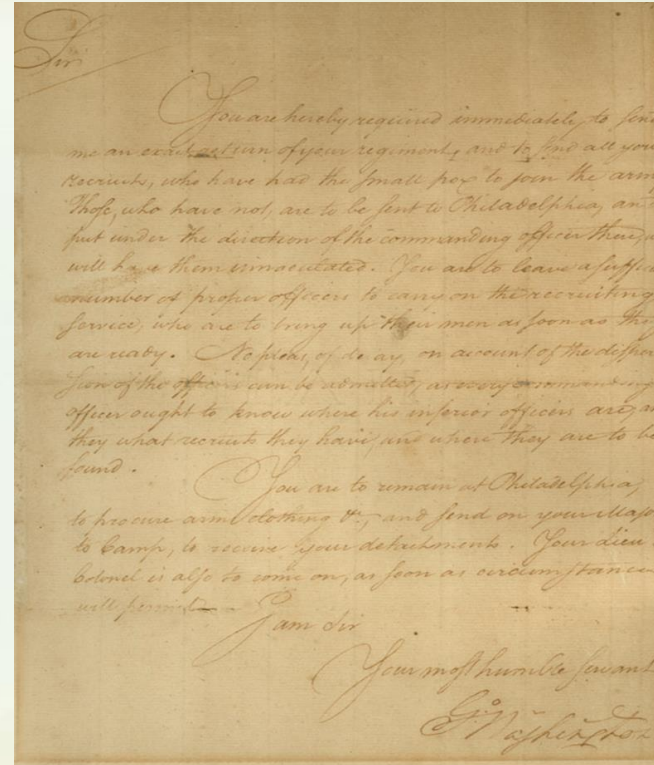 Sir
You are hereby required immediately to send
me an exact return of your regiment, and to send all your
recruits, who have had the small pox to join the army
Those, who have not, are to be sent to Philadelphia, and
put under the direction of the commanding officer there,
will have them innoculated. You are to leave a suffic
number of proper officers to carry on the recruiting
Service, who are to bring up their men as soon as they
are ready. No pleas, of delay, on account of the disper
sion of the officers can be admitted, as every commanding
officer ought to know where his inferior officers are, an
they what recruits they have, and where they are to be
found.
You are to remain at Philadelphia,
to procure arms, clothing &c, and send on your Majo
to Camp, to receive your detachments. Your Lieu
Colonel is also to come on, as soon as circumstance
will permit
I am Sir
Your most humble Servant
Go Washington